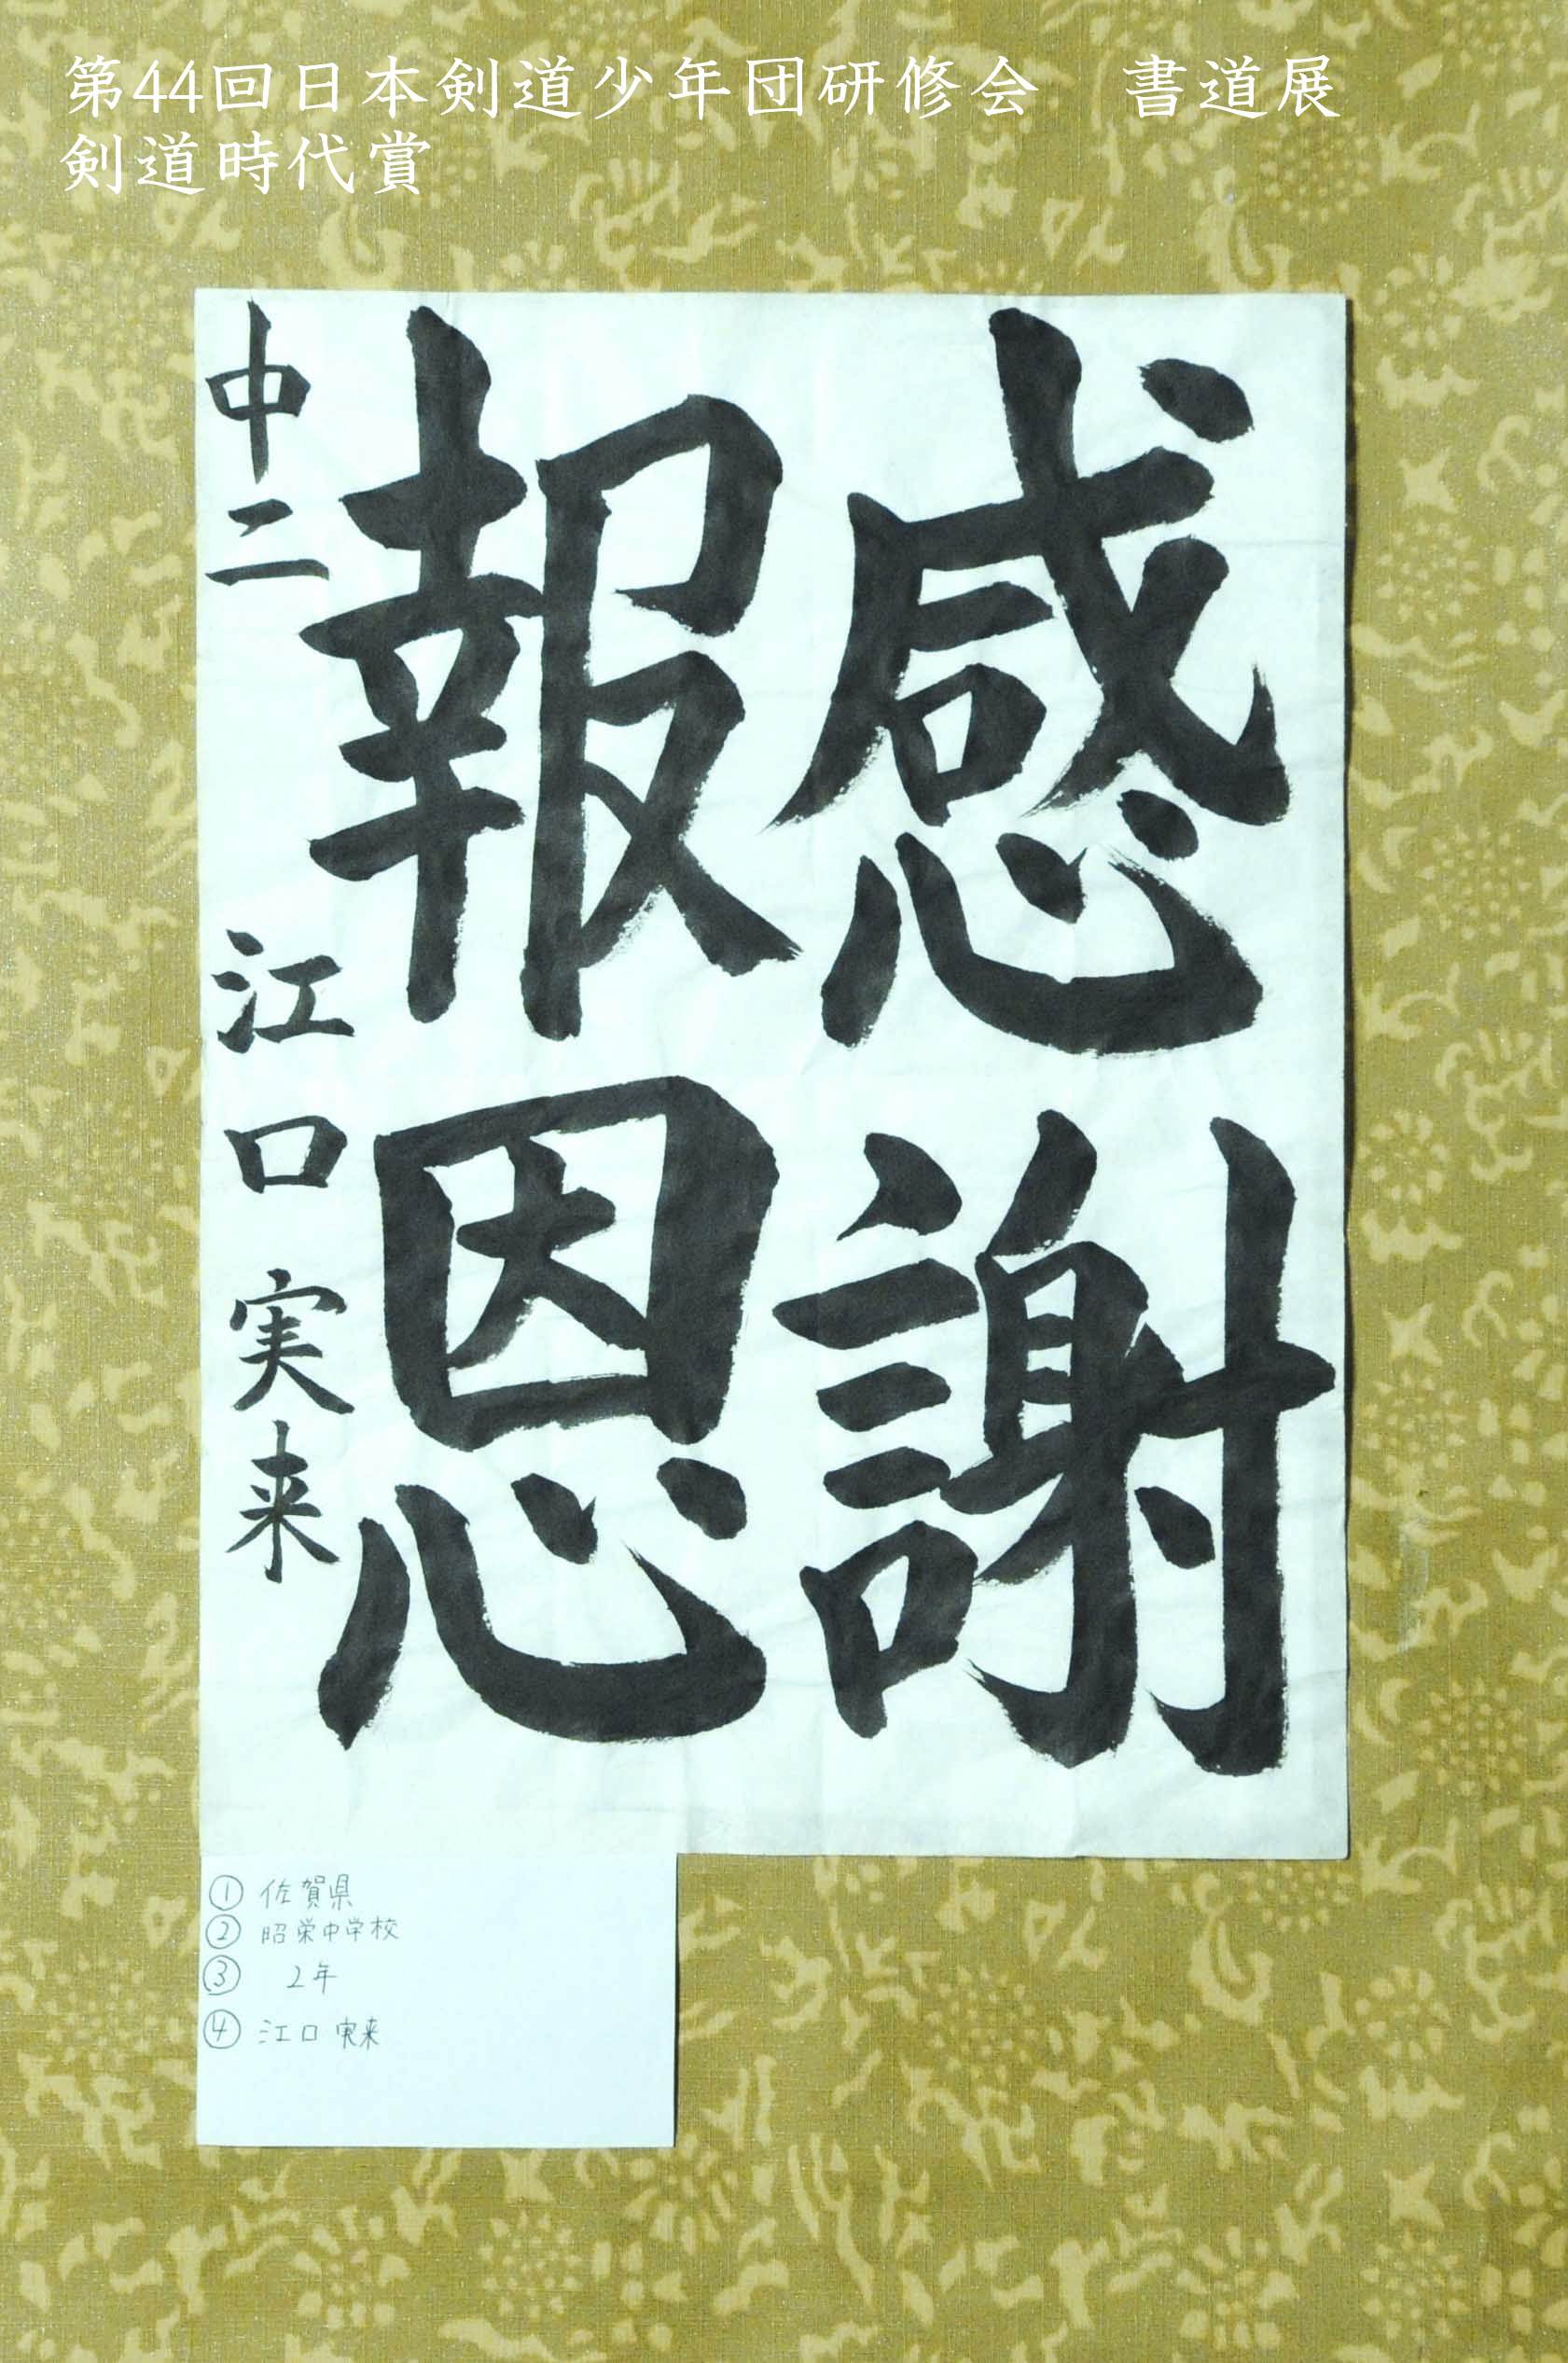 第44回日本剣道少年団研修会　書道展
剣道時代賞
感謝
報恩
中二 江口実来
① 佐賀県
② 昭栄中学校
③ 2年
④ 江口 実来